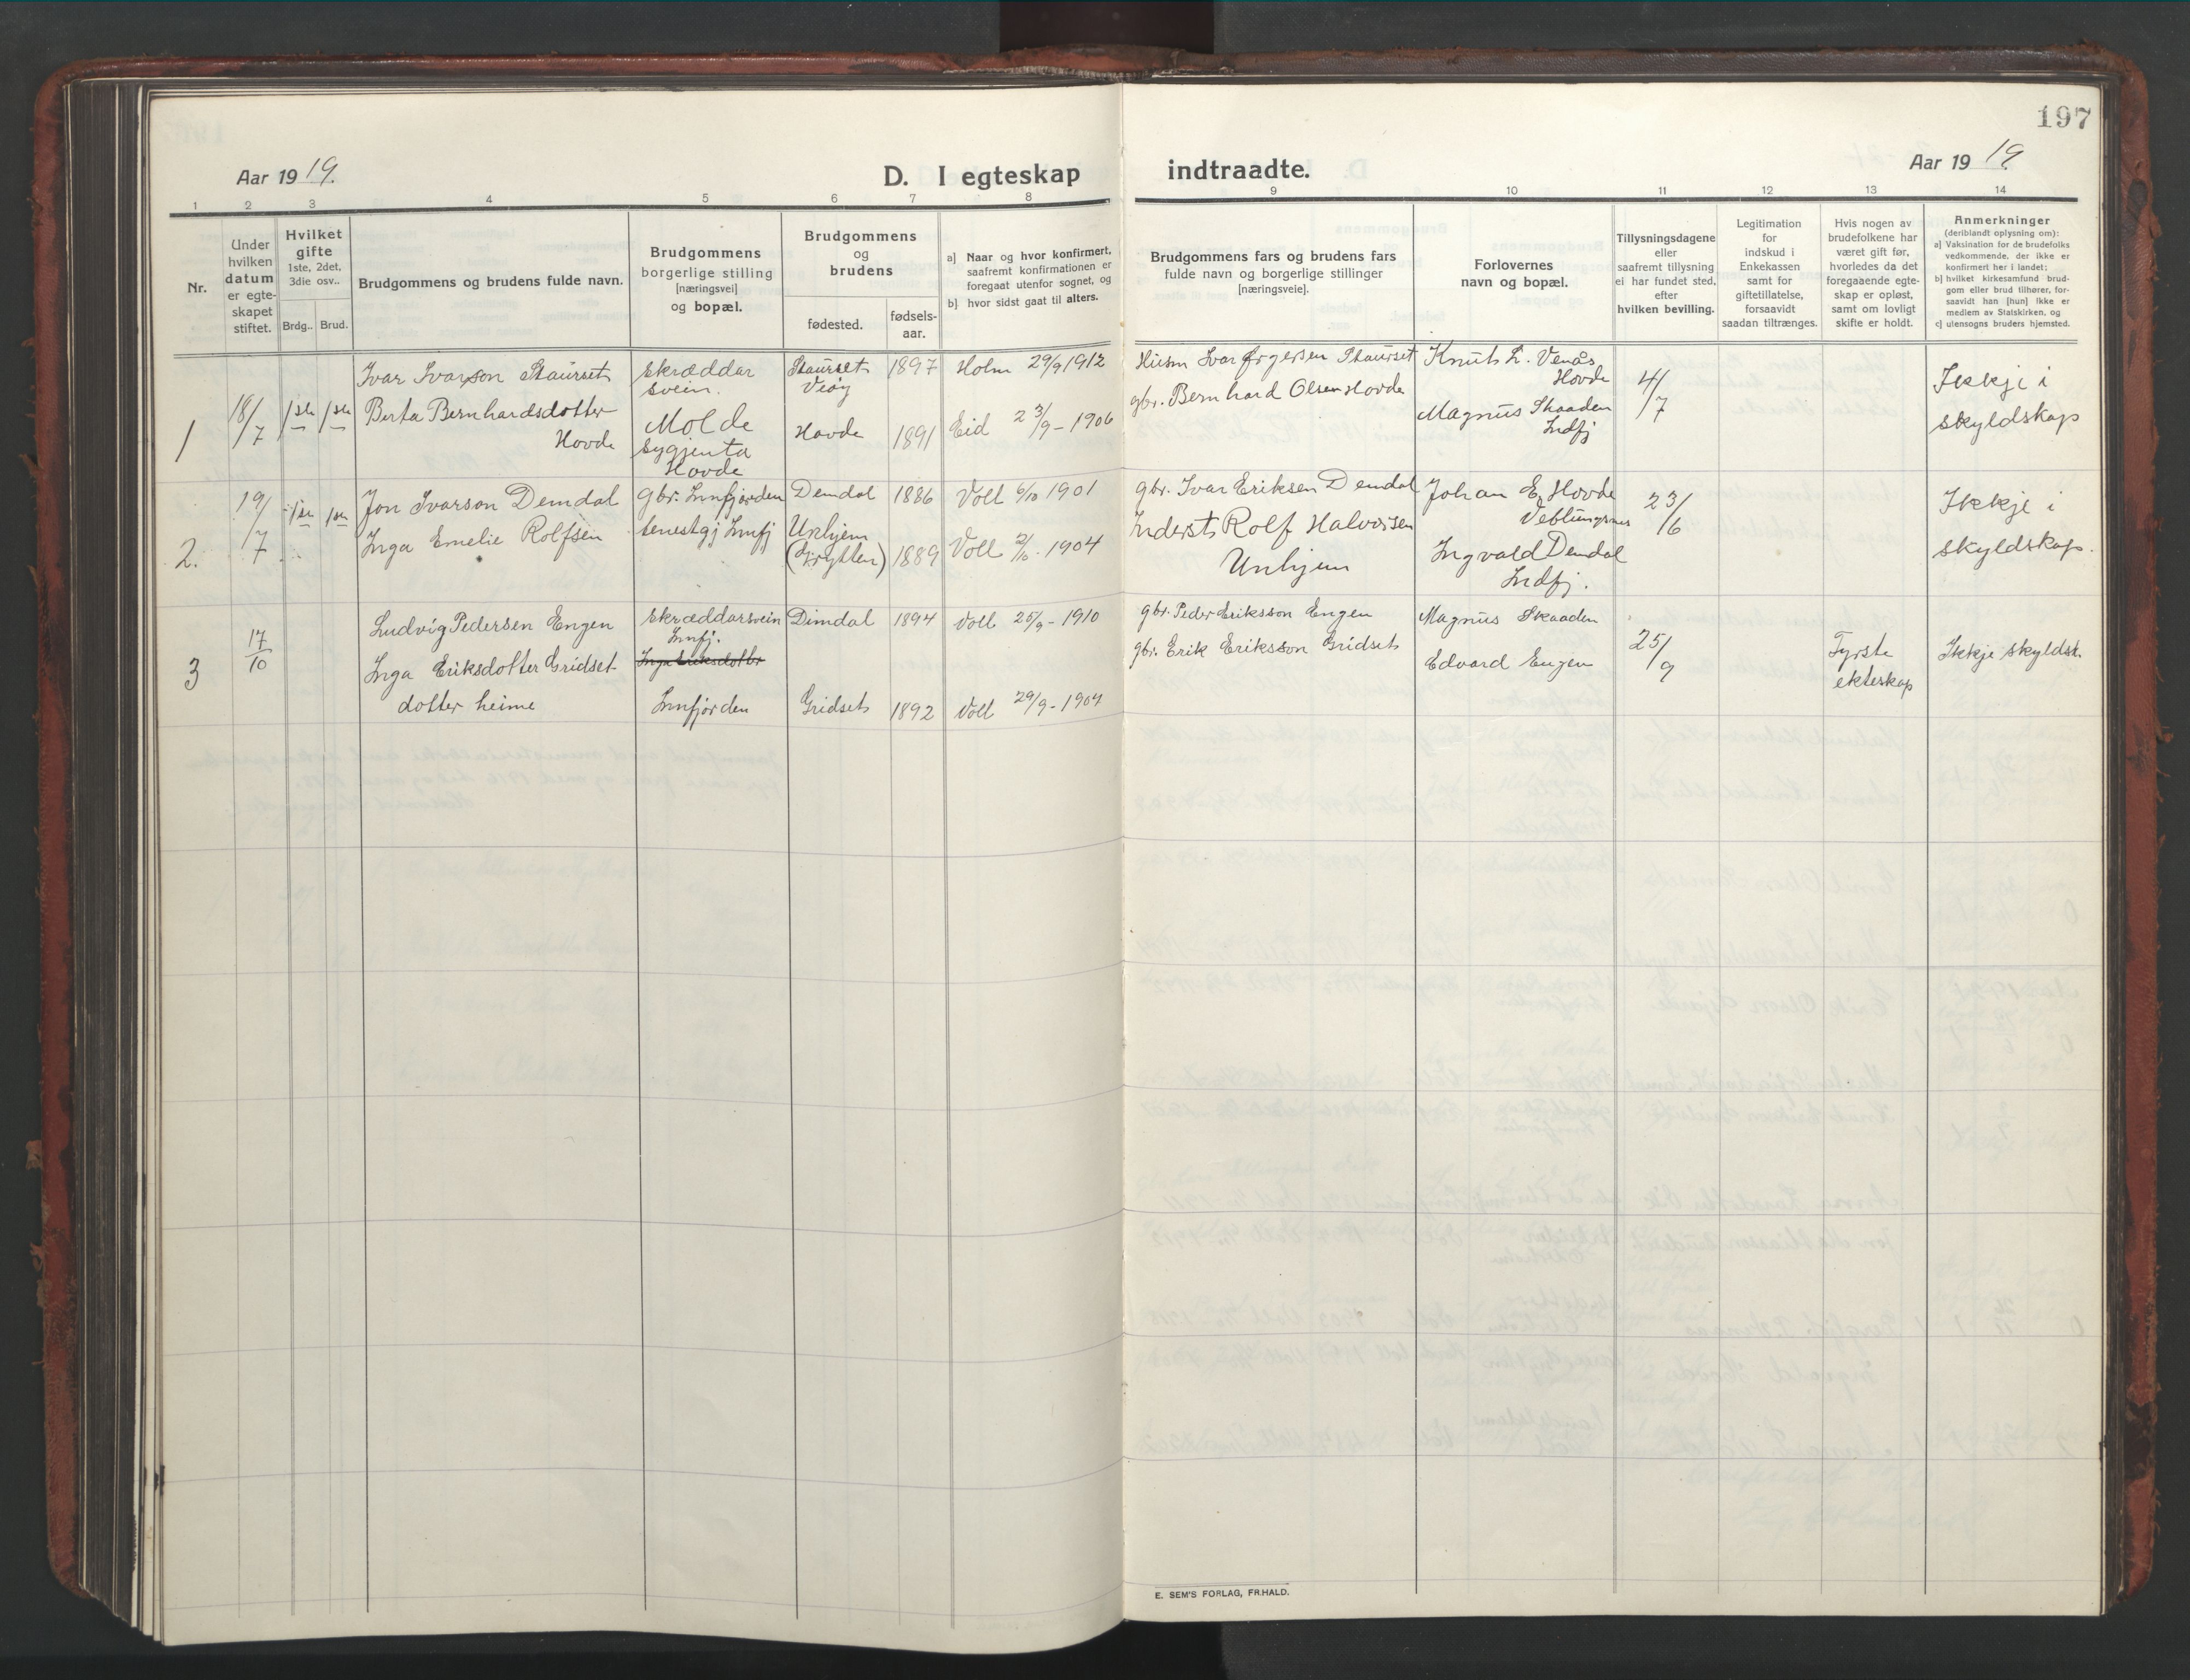 197
Aar 1919.
D. I egteskap indtraadte.
Aar 1919.
1 2 3 4 5 6 7 8 9 10 11 12 13 14
Nr.
Under
hvilken
datum
er egte-
skapet
stiftet.
Hvilket
gifte
1ste, 2det,
3die osv..
Brdg.. Brud.
Brudgommens og brudens fulde navn.
Brudgommens
borgerlige stilling
[næringsvei]
og bopæl.
Brudgommens
og
brudens
fødested.
fødsels-
aar.
a] Naar og hvor konfirmert,
saafremt konfirmationen er
foregaat utenfor sognet, og
b] hvor sidst gaat til alters.
Brudgommens fars og brudens fars
fulde navn og borgerlige stillinger
[næringsveie].
Forlovernes
navn og bopæl.
Tillysningsdagene
eller
saafremt tillysning
ei har fundet sted,
efter
hvilken bevilling.
Legitimation
for
indskud i
Enkekassen
samt for
giftetillatelse,
forsaavidt
saadan tiltrænges.
Hvis nogen av
brudefolkene har
været gift før,
hvorledes da det
foregaaende egte-
skap er opløst,
samt om lovligt
skifte er holdt.
Anmerkninger
(deriblandt oplysning om):
a] Vaksination for de brudefolks
vedkommende, der ikke er
konfirmert her i landet;
b] hvilket kirkesamfund brud-
gom eller brud tilhører, for-
saavidt han [hun] ikke er
medlem av Statskirken, og
c] utensogns bruders hjemsted.
1
18/7
1ste 1ste
Ivar Ivarson Staurset
Berta Bernhardsdotter
Hovde
skræddar
svein.
Molde
sygjenta
Hovde
Staurset
Veøy
Hovde
1897
1891
Holm 29/9 1912
Eid 23/9 - 1906
Husm Ivar Staurset
gbr. Bernhard Olsen Hovde
Knut L. Venås
Hovde
Magnus Skaaden
Indfj
4/7
Ikkje i
skyldskap
2.
19/7
1ste 1ste
Jon Ivarson Demdal
Inga Emelie Rolfsen
gbr. Innfjorden
tenestgj Innfj
Demdal
Unhjem
(Grytten)
1886
1889
Voll 6/10 1901
Voll 2/10 - 1904
gbr. Ivar Eriksen Demdal
Inderst Rolf Halvorsen
Unhjem
Johan E. Hovde
Veblungsnes
Ingvald Demdal
Indfj.
23/6
Ikkje i
skyldskap.
3
17/10
Ludvig Pedersen Engen
Inga Eriksdotter Gridset
dotter heime
skræddarsvein
Innfj.
Inga Eriksdotter
Innfjorden
Dimdal
Gridset
1894
1892
Voll 25/9 - 1910
Voll 29/9 - 1907
gbr. Peder Eriksson Engen
gbr. Erik Eriksson Gridset
Magnus Skaaden
Edvard Engen
25/9
Fyrste
ekteskap
Ikkje skyldsk.
E. SEM'S FORLAG, FR.HALD.